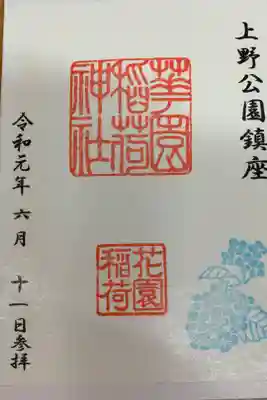 上野公園鎮座
華園
稲荷
神社
花園
稲荷
令和元年 六月 十一日参拝